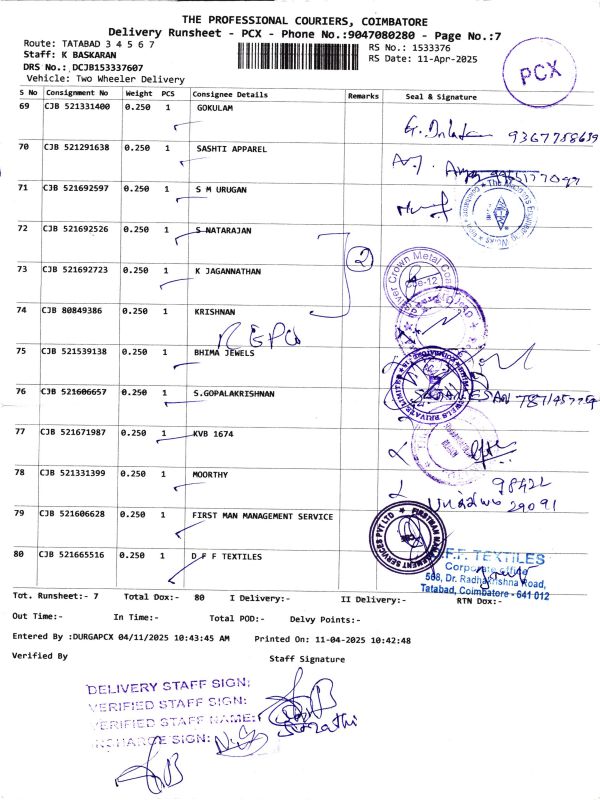 THE PROFESSIONAL COURIERS, COIMBATORE
Delivery Runsheet - PCX - Phone No.:9047080280 - Page No.:7
Route: TATABAD 3 4 5 6 7
RS No.: 1533376
Staff: K BASKARAN
RS Date: 11-Apr-2025
DRS No.: DCJB153337607
Vehicle: Two Wheeler Delivery
PCX
S No Consignment No Weight PCS Consignee Details Remarks Seal & Signature
69 CJB 521331400 0.250 1 GOKULAM
9367788639
70 CJB 521291638 0.250 1 SASHTI APPAREL
71 CJB 521692597 0.250 1 S M URUGAN
72 CJB 521692526 0.250 1 S NATARAJAN
2
73 CJB 521692723 0.250 1 K JAGANNATHAN
74 CJB 80849386 0.250 1 KRISHNAN
REPCO
75 CJB 521539138 0.250 1 BHIMA JEWELS
76 CJB 521606657 0.250 1 S.GOPALAKRISHNAN
77 CJB 521671987 0.250 1 KVB 1674
78 CJB 521331399 0.250 1 MOORTHY
98422
29091
79 CJB 521606628 0.250 1 FIRST MAN MANAGEMENT SERVICE
FIRSTMAN MANAGEMENT SERVICES PVT LTD
80 CJB 521665516 0.250 1 D F F TEXTILES
F.F. TEXTILES
Corporate office
508, Dr. Radhakrishna Road,
Tatabad, Coimbatore - 641 012
Tot. Runsheet:- 7 Total Dox:- 80 I Delivery:- II Delivery:- RTN Dox:-
Out Time:- In Time:- Total POD:- Delvy Points:-
Entered By :DURGAPCX 04/11/2025 10:43:45 AM Printed On: 11-04-2025 10:42:48
Verified By Staff Signature
DELIVERY STAFF SIGN:
VERIFIED STAFF SIGN:
VERIFIED STAFF NAME:
INCHARGE SIGN: